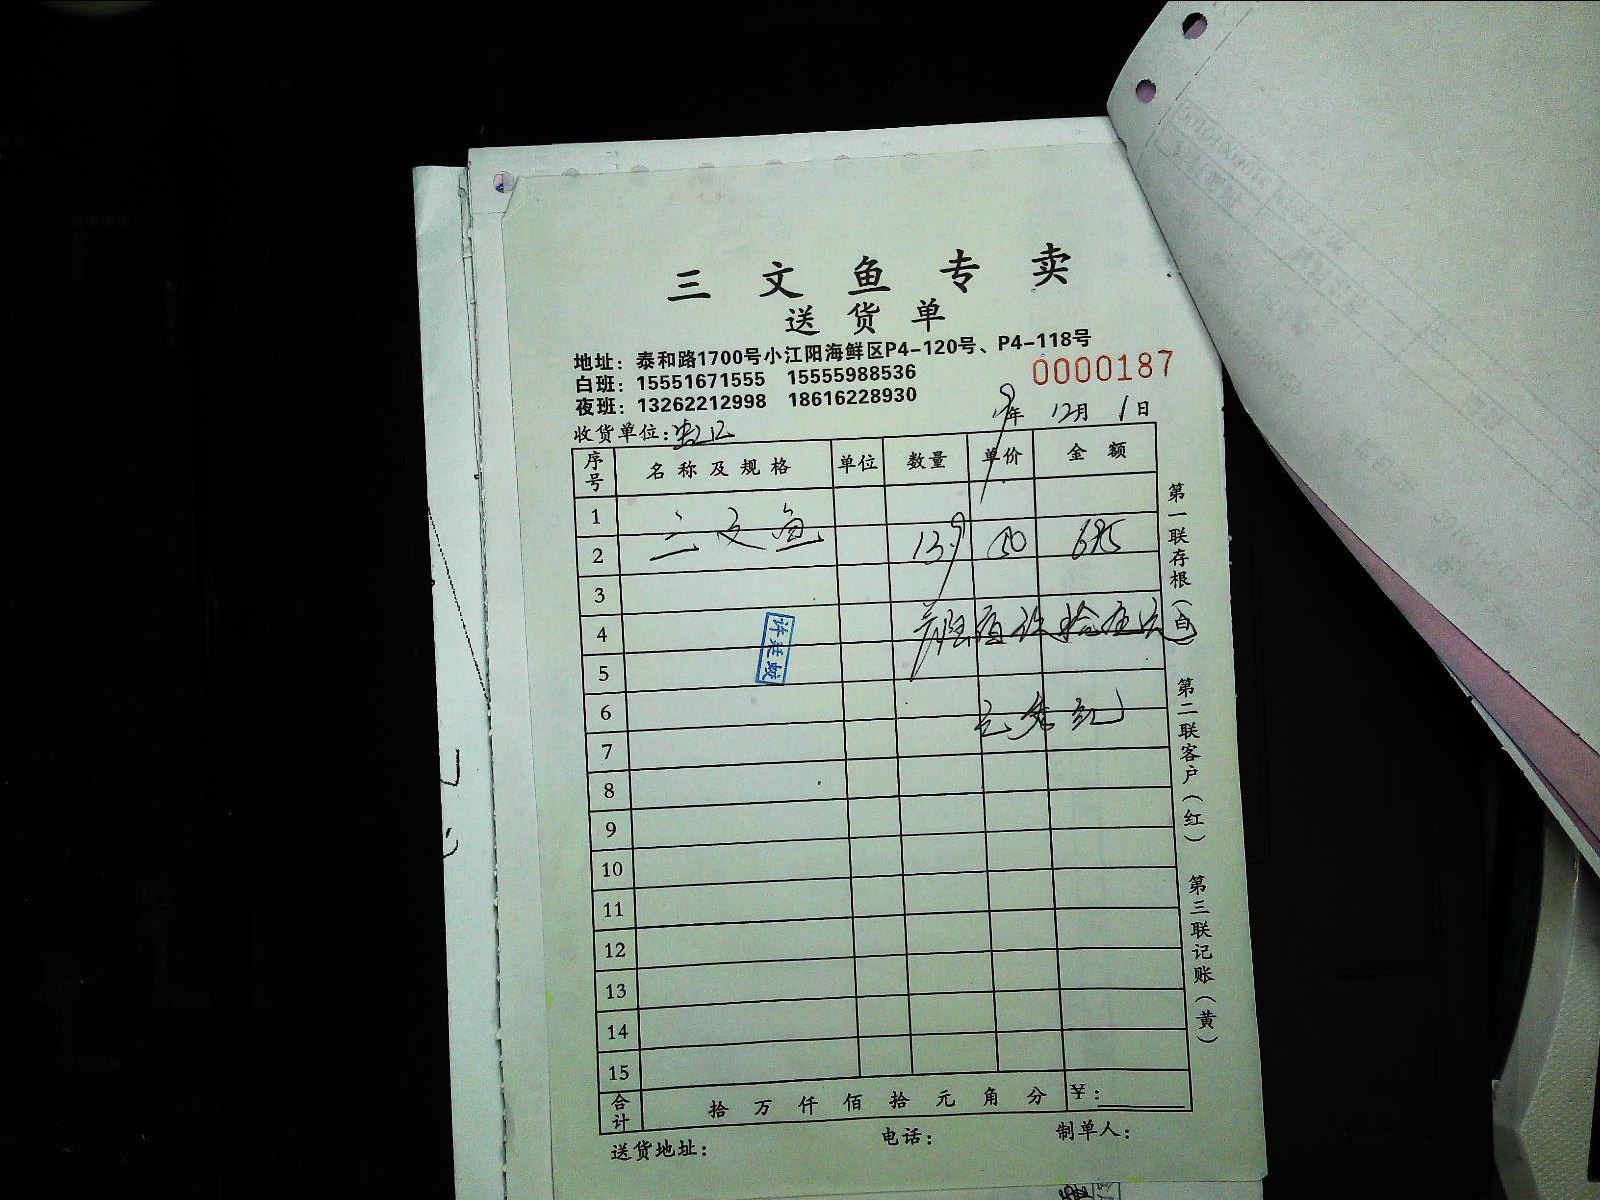 三文鱼专卖
送货单
地址：泰和路1700号小江阳海鲜区P4-120号、P4-118号
白班：15551671555 15555988536
夜班：13262212998 18616228930
0000187
19年 12月 1日
收货单位：
序号 名称及规格 单位 数量 单价 金额
1
2 三文鱼 13.9 50 695
3
4
5
6
7
8
9
10
11
12
13
14
15
合计 拾 万 仟 佰 拾 元 角 分 ￥：
送货地址： 电话： 制单人：
第一联存根（白） 第二联客户（红） 第三联记账（黄）